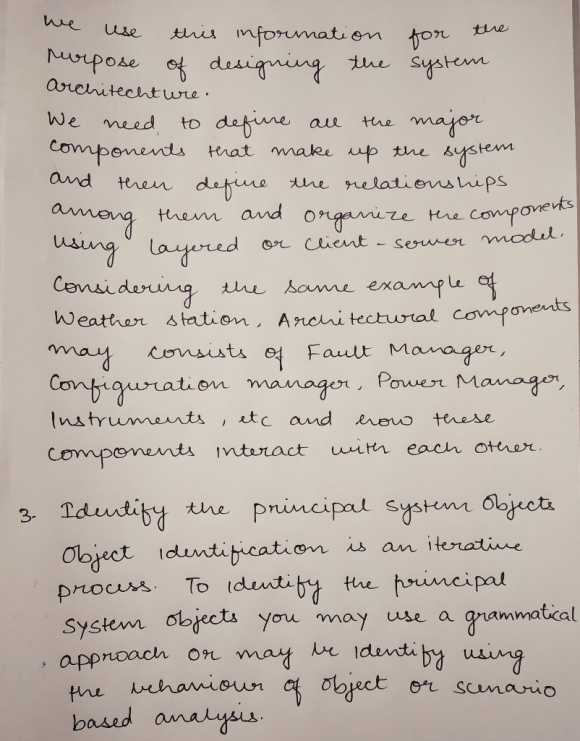 We use this information for the
purpose of designing the system
architechture.
We need to define all the major
components that make up the system
and then define the relationships
among them and organize the components
using layered or client - server model.
Considering the same example of
Weather station, Architectural components
may consists of Fault Manager,
Configuration manager, Power Manager,
Instruments, etc and how these
components interact with each other.
3. Identify the principal system Objects
Object identification is an iterative
process. To identify the principal
system objects you may use a grammatical
approach or may be identify using
the behaviour of object or scenario
based analysis.